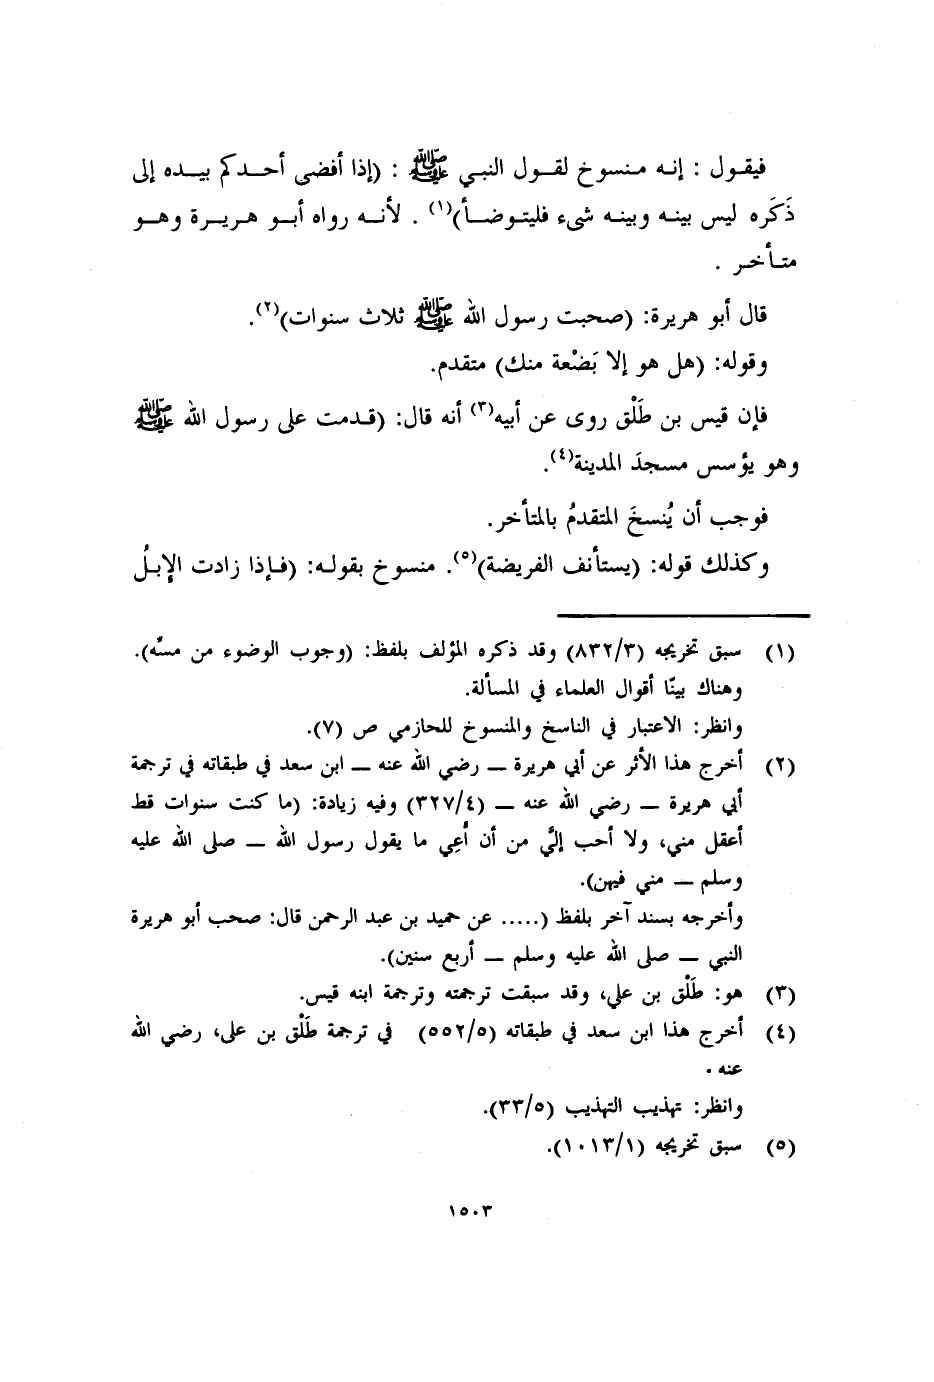 فيقول : إنه منسوخ لقول النبي ﷺ : (إذا أفضى أحدكم بيده إلى
ذَكَره ليس بينه وبينه شىء فليتوضأ)(١) . لأنه رواه أبو هريرة وهو
متأخر .
قال أبو هريرة: (صحبت رسول الله ﷺ ثلاث سنوات)(٢).
وقوله: (هل هو إلا بَضْعة منك) متقدم.
فإن قيس بن طَلْق روى عن أبيه(٣) أنه قال: (قدمت على رسول الله ﷺ
وهو يؤسس مسجدَ المدينة(٤).
فوجب أن يُنسخَ المتقدمُ بالمتأخر.
وكذلك قوله: (يستأنف الفريضة)(٥). منسوخ بقوله: (فإذا زادت الإبلُ
(١) سبق تخريجه (٨٣٢/٣) وقد ذكره المؤلف بلفظ: (وجوب الوضوء من مسّه).
وهناك بينّا أقوال العلماء في المسألة.
وانظر: الاعتبار في الناسخ والمنسوخ للحازمي ص (٧).
(٢) أخرج هذا الأثر عن أبي هريرة ــ رضي الله عنه ــ ابن سعد في طبقاته في ترجمة
أبي هريرة ــ رضي الله عنه ــ (٣٢٧/٤) وفيه زيادة: (ما كنت سنوات قط
أعقل مني، ولا أحب إليَّ من أن أُعِي ما يقول رسول الله ــ صلى الله عليه
وسلم ــ مني فيهن).
وأخرجه بسند آخر بلفظ (..... عن حميد بن عبد الرحمن قال: صحب أبو هريرة
النبي ــ صلى الله عليه وسلم ــ أربع سنين).
(٣) هو: طَلْق بن علي، وقد سبقت ترجمته وترجمة ابنه قيس.
(٤) أخرج هذا ابن سعد في طبقاته (٥٥٢/٥) في ترجمة طَلْق بن على، رضي الله
عنه .
وانظر: تهذيب التهذيب (٣٣/٥).
(٥) سبق تخريجه (١٠١٣/١).
١٥٠٣